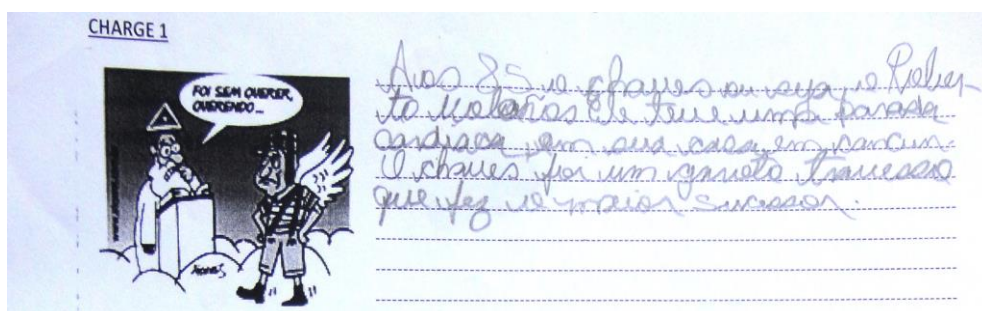 CHARGE 1
FOI SEM QUERER,
QUERENDO...
Aos 85 o chaves ou seja, o Rober-
to Bolaños Ele teve uma parada
cardiaca, em sua casa, em cancun.
O chaves foi um garoto travesso
que fez o maior sucessor.